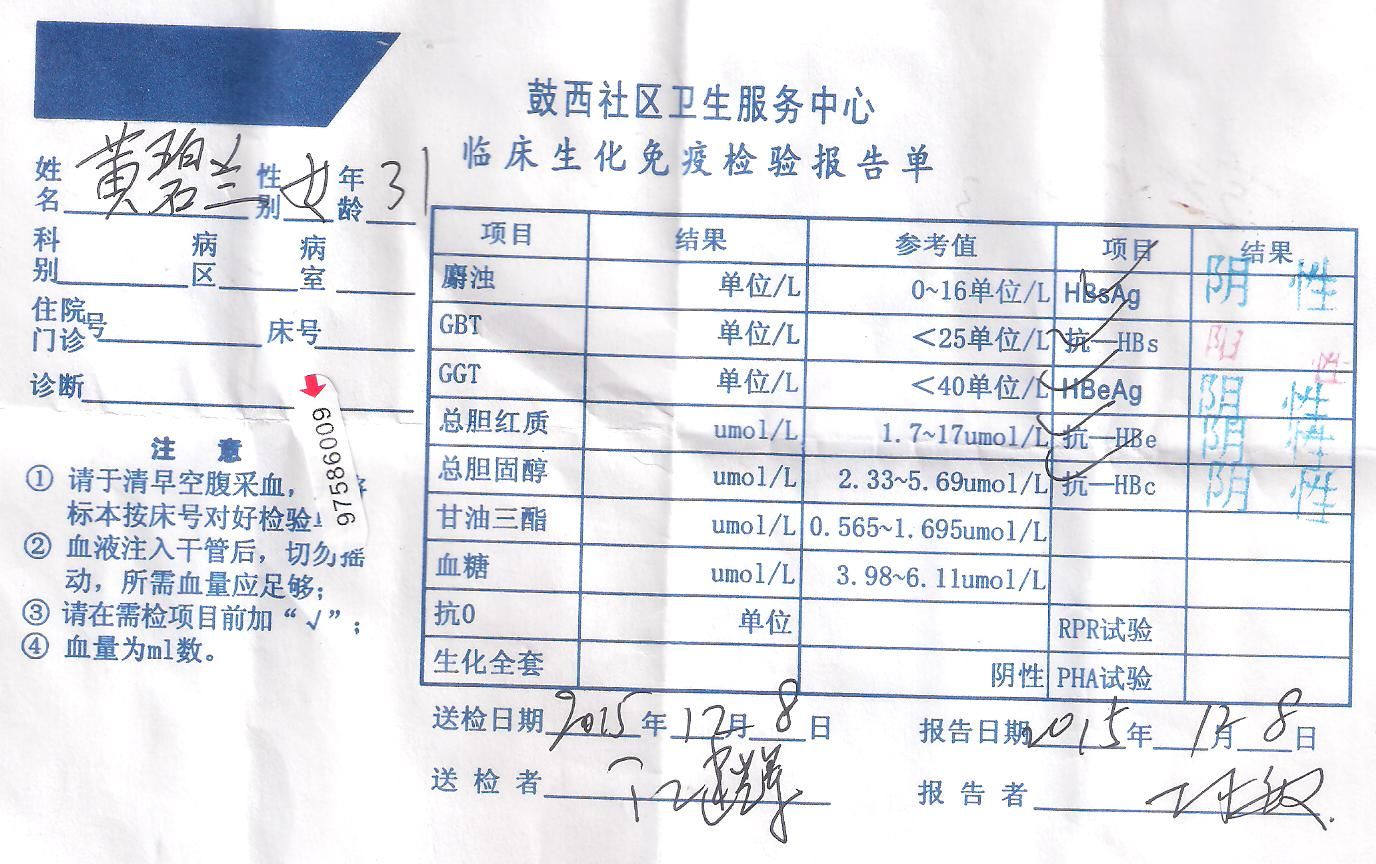 鼓西社区卫生服务中心
临床生化免疫检验报告单
姓名 黄碧兰 性别 女 年龄 31
科别 病区 病室
住院门诊号 床号
诊断
9758600
注 意
① 请于清早空腹采血,
标本按床号对好检验
② 血液注入干管后,切勿摇
动,所需血量应足够;
③ 请在需检项目前加“√”;
④ 血量为ml数。
项目 结果 参考值 项目 结果
麝浊 单位/L 0~16单位/L HBsAg 阴 性
GBT 单位/L <25单位/L 抗—HBs 阳 性
GGT 单位/L <40单位/L HBeAg 阴 性
总胆红质 umol/L 1.7~17umol/L 抗—HBe 阴 性
总胆固醇 umol/L 2.33~5.69umol/L 抗—HBc 阴 性
甘油三酯 umol/L 0.565~1.695umol/L
血糖 umol/L 3.98~6.11umol/L
抗O 单位 RPR试验
生化全套 阴性 PHA试验
送检日期 2015 年 12 月 8 日 报告日期 2015 年 12 月 8 日
送检者 报告者